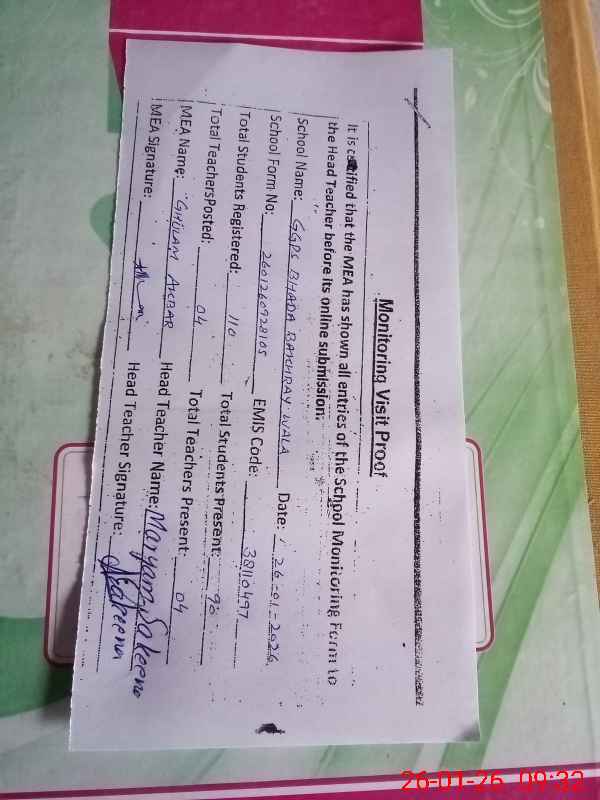 Monitoring Visit Proof
It is certified that the MEA has shown all entries of the School Monitoring Form to
the Head Teacher before its online submission.
School Name: GGPS BHADA BAKHRAY WALA Date: 26-01-2026
School Form No: 2601260928105 EMIS Code: 38110497
Total Students Registered: 110 Total Students Present: 90
Total TeachersPosted: 04 Total Teachers Present: 04
MEA Name: GHULAM AKBAR Head Teacher Name: Maryam Sakeena
MEA Signature: Head Teacher Signature: Sakeena
26-01-26 09:32